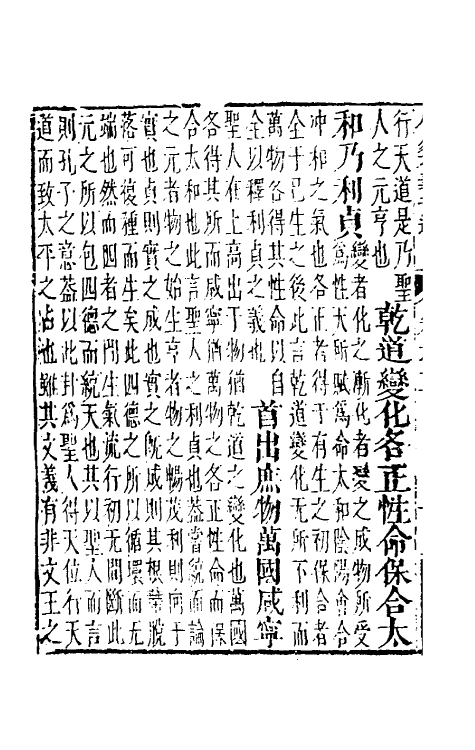 行天道是乃聖
人之元亨也
乾道變化各正性命保合太
和乃利貞
變者化之漸化者變之成物所受
爲性天所賦爲命太和陰陽會合
冲和之氣也各正者得于有生之初保合者
全于已生之後此言乾道變化无所不利而
萬物各得其性命以自
全以釋利貞之義也
首出庶物萬國咸寧
聖人在上高出于物猶乾道之變化也萬國
各得其所而咸寧猶萬物之各正性命而保
合太和也此言聖人之利貞也葢嘗統而論
之元者物之始生亨者物之暢茂利則向于
實也貞則實之成也實之旣成則其根蔕脫
落可復種而生矣此四德之所以循環而无
端也然而四者之間生氣流行初无間斷此
元之所以包四德而統天也其以聖人而言
則孔子之意葢以此卦爲聖人得天位行天
道而致太平之占也雖其文義有非文王之